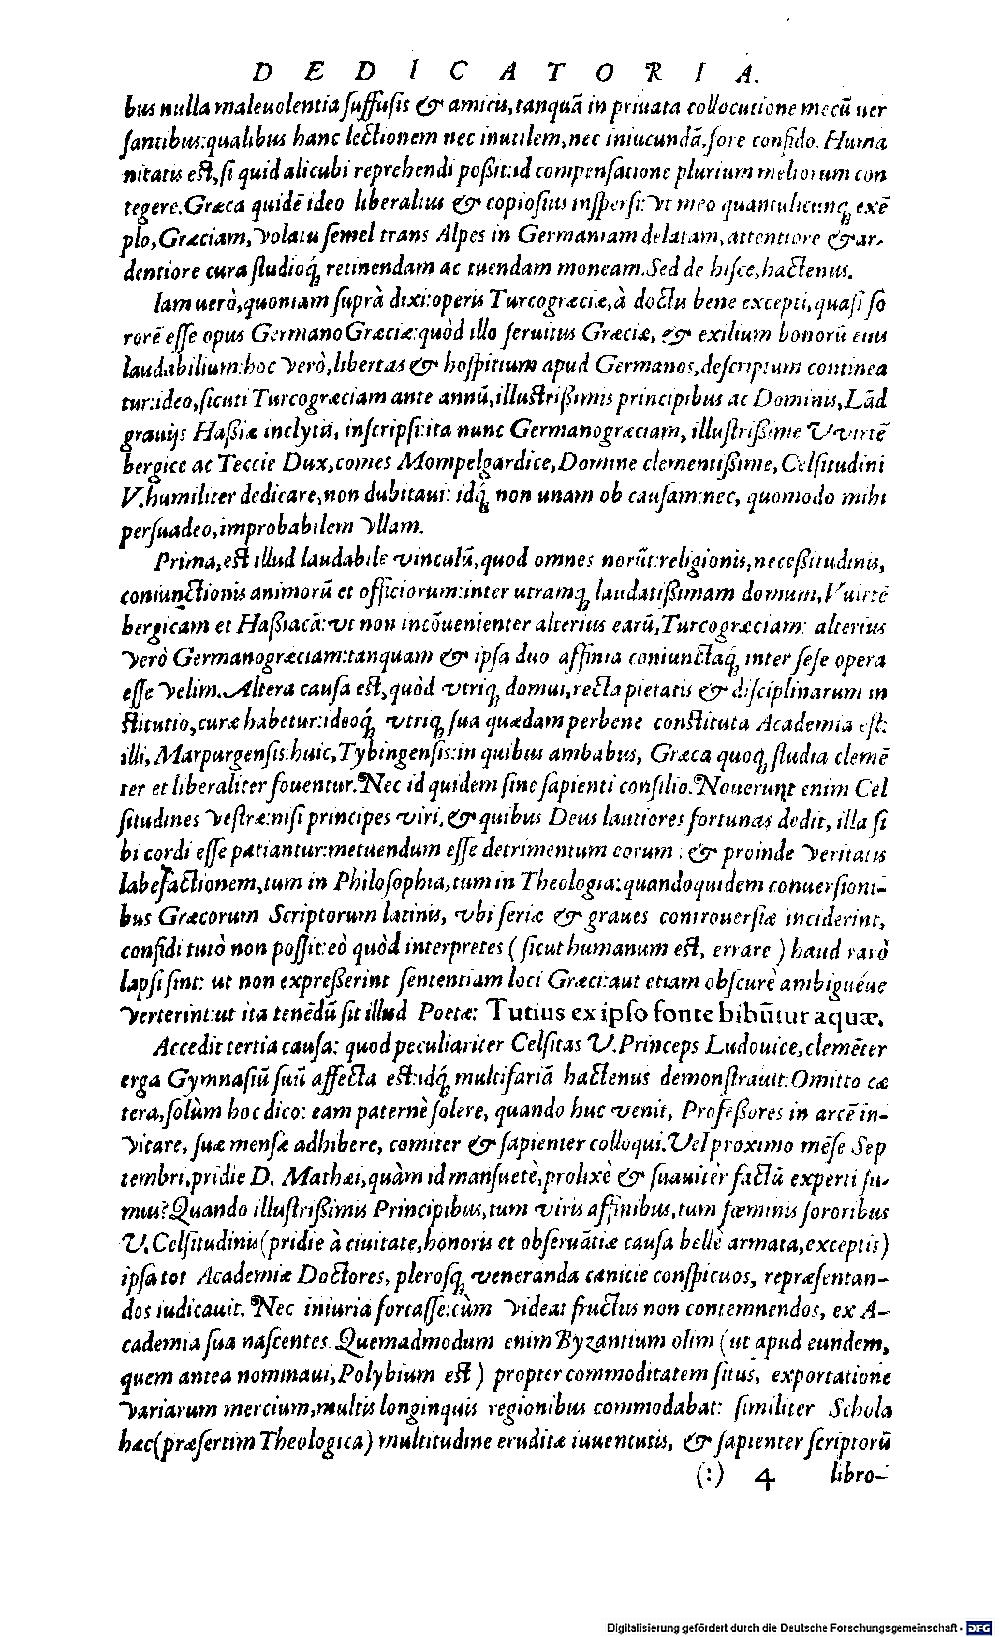 DEDICATORIA.
bus nulla maleuolentia ſuffuſis & amicis, tanquã in priuata collocutione mecũ uer
ſantibus: qualibus hanc lectionem nec inutilem, nec iniucundã, fore confido. Huma
nitatis eſt, ſi quid alicubi reprehendi poßit: id compenſatione plurium meliorum con
tegere. Græca quidẽ ideo liberalius & copioſius inſperſi: vt meo quantulicunq; exẽ
plo, Græciam, volatu ſemel trans Alpes in Germaniam delatam, attentiore & ar-
dentiore cura ſtudioq́; retinendam ac tuendam moneam. Sed de hiſce, hactenus.
Iam uerò, quoniam ſuprà dixi: operis Turcogræciæ, à doctis bene excepti, quaſi ſo
rorẽ eſſe opus GermanoGræciæ: quòd illo ſeruitus Græciæ, & exilium bonorũ eius
laudabilium: hoc verò, libertas & hoſpitium apud Germanos, deſcriptum continea
tur: ideo, ſicuti Turcogræciam ante annũ, illuſtrißimis principibus ac Dominis, Lãd
grauijs Haßiæ inclytis, inſcripſi: ita nunc Germanogræciam, illuſtrißime Vvirtẽ
bergice ac Teccie Dux, comes Mompelgardice, Domine clementißime, Celſitudini
V. humiliter dedicare, non dubitaui: idq́; non unam ob cauſam: nec, quomodo mihi
perſuadeo, improbabilem vllam.
Prima, eſt illud laudabile vinculũ, quod omnes norũt: religionis, neceßitudinis,
coniunctionis animorũ et officiorum: inter utramq; laudatißimam domum, Vuirtẽ
bergicam et Haßiacã: vt non incõuenienter alterius earũ, Turcogræciam: alterius
verò Germanogræciam: tanquam & ipſa duo affinia coniunctaq́; inter ſeſe opera
eſſe velim. Altera cauſa eſt, quòd vtriq; domui, recta pietatis & diſciplinarum in
ſtitutio, curæ habetur: ideoq́; vtriq; ſua quædam perbene conſtituta Academia eſt:
illi, Marpurgenſis: huic, Tybingenſis: in quibus ambabus, Græca quoq; ſtudia clemẽ
ter et liberaliter fouentur. Nec id quidem ſine ſapienti conſilio. Nouerunt enim Cel
ſitudines veſtræ: niſi principes viri, & quibus Deus lautiores fortunas dedit, illa ſi
bi cordi eſſe patiantur: metuendum eſſe detrimentum eorum: & proinde veritatis
labefactionem, tum in Philoſophia, tum in Theologia: quandoquidem conuerſioni-
bus Græcorum Scriptorum latinis, vbi ſeriæ & graues controuerſiæ inciderint,
confidi tutò non poſſit: eò quòd interpretes (ſicut humanum eſt, errare) haud rarò
lapſi ſint: ut non expreßerint ſententiam loci Græci: aut etiam obſcurè ambiguéue
verterint: ut ita tenẽdũ ſit illud Poetæ: Tutius ex ipſo fonte bibũtur aquæ.
Accedit tertia cauſa: quod peculiariter Celſitas V. Princeps Ludouice, clemẽter
erga Gymnaſiũ ſuũ affecta eſt: idq́; multifariã hactenus demonſtrauit. Omitto cæ
tera, ſolùm hoc dico: eam paternè ſolere, quando huc venit, Profeßores in arcẽ in-
vitare, ſuæ menſæ adhibere, comiter & ſapienter colloqui. Vel proximo mẽſe Sep
tembri, pridie D. Mathæi, quàm id manſuetè, prolixè & ſuauitèr factũ experti ſu-
mus? Quando illuſtrißimis Principibus, tum viris affinibus, tum fœminis ſororibus
V. Celſitudinis (pridie à ciuitate, honoris et obſeruãtiæ cauſa bellè armata, exceptis)
ipſa tot Academiæ Doctores, pleroſq; veneranda canicie conſpicuos, repræſentan-
dos iudicauit. Nec iniuria fortaſſe: cùm videat fructus non contemnendos, ex A-
cademia ſua naſcentes. Quemadmodum enim Byzantium olim (ut apud eundem,
quem antea nominaui, Polybium eſt) propter commoditatem ſitus, exportatione
variarum mercium, multis longinquis regionibus commodabat: ſimiliter Schola
hæc (præſertim Theologica) multitudine eruditæ iuuentutis, & ſapienter ſcriptorũ
(:) 4 libro-
Digitalisierung gefördert durch die Deutsche Forschungsgemeinschaft - DFG